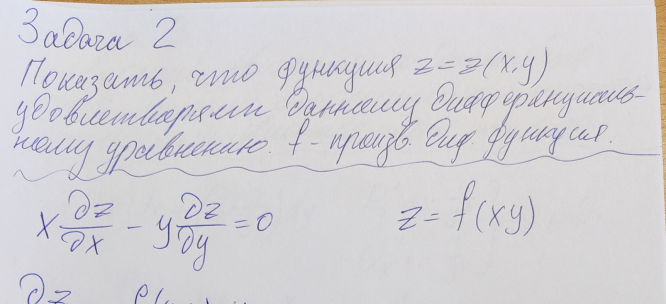 Задача 2
Показать, что функция z = z(x,y)
удовлетворяет данному дифференциаль-
ному уравнению. f - произв. диф. функция.
x ∂z/∂x - y ∂z/∂y = 0 z = f(xy)
∂z